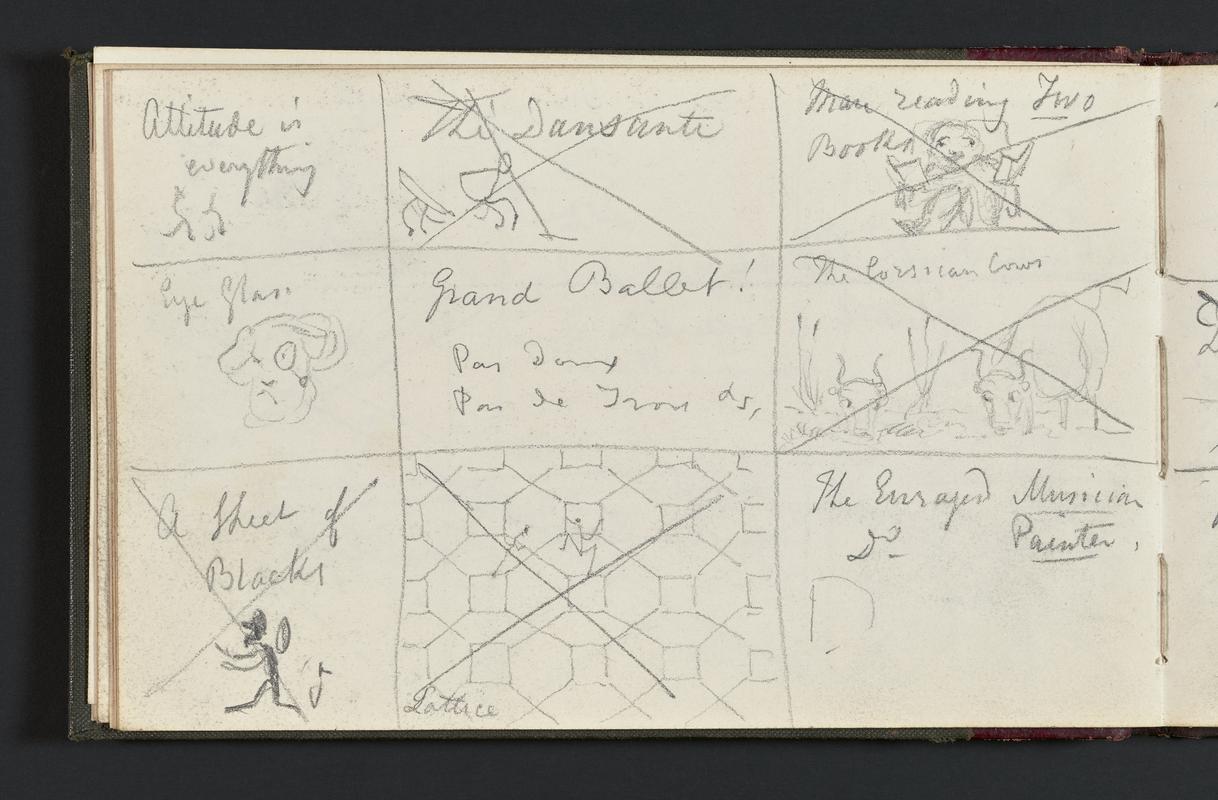 Attitude is
everything
Thé Dansante
Man reading Two
Books
Eye Glass
Grand Ballet!
Pas Deux
Pas de Trois do,
The Corsican Cows
A Sheet of
Blacks
Lattice
The Enraged Musician
Do Painter,